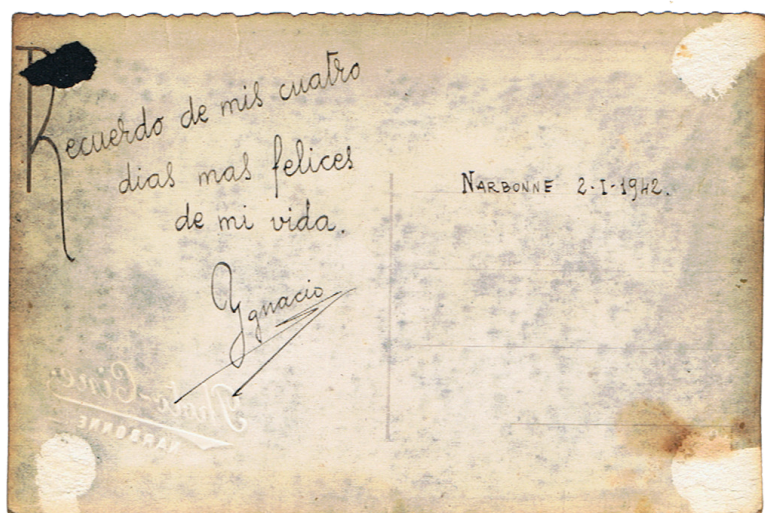 Recuerdo de mis cuatro
dias mas felices
de mi vida.
Ygnacio
NARBONNE 2-I-1942.
Photo-Ciné
NARBONNE